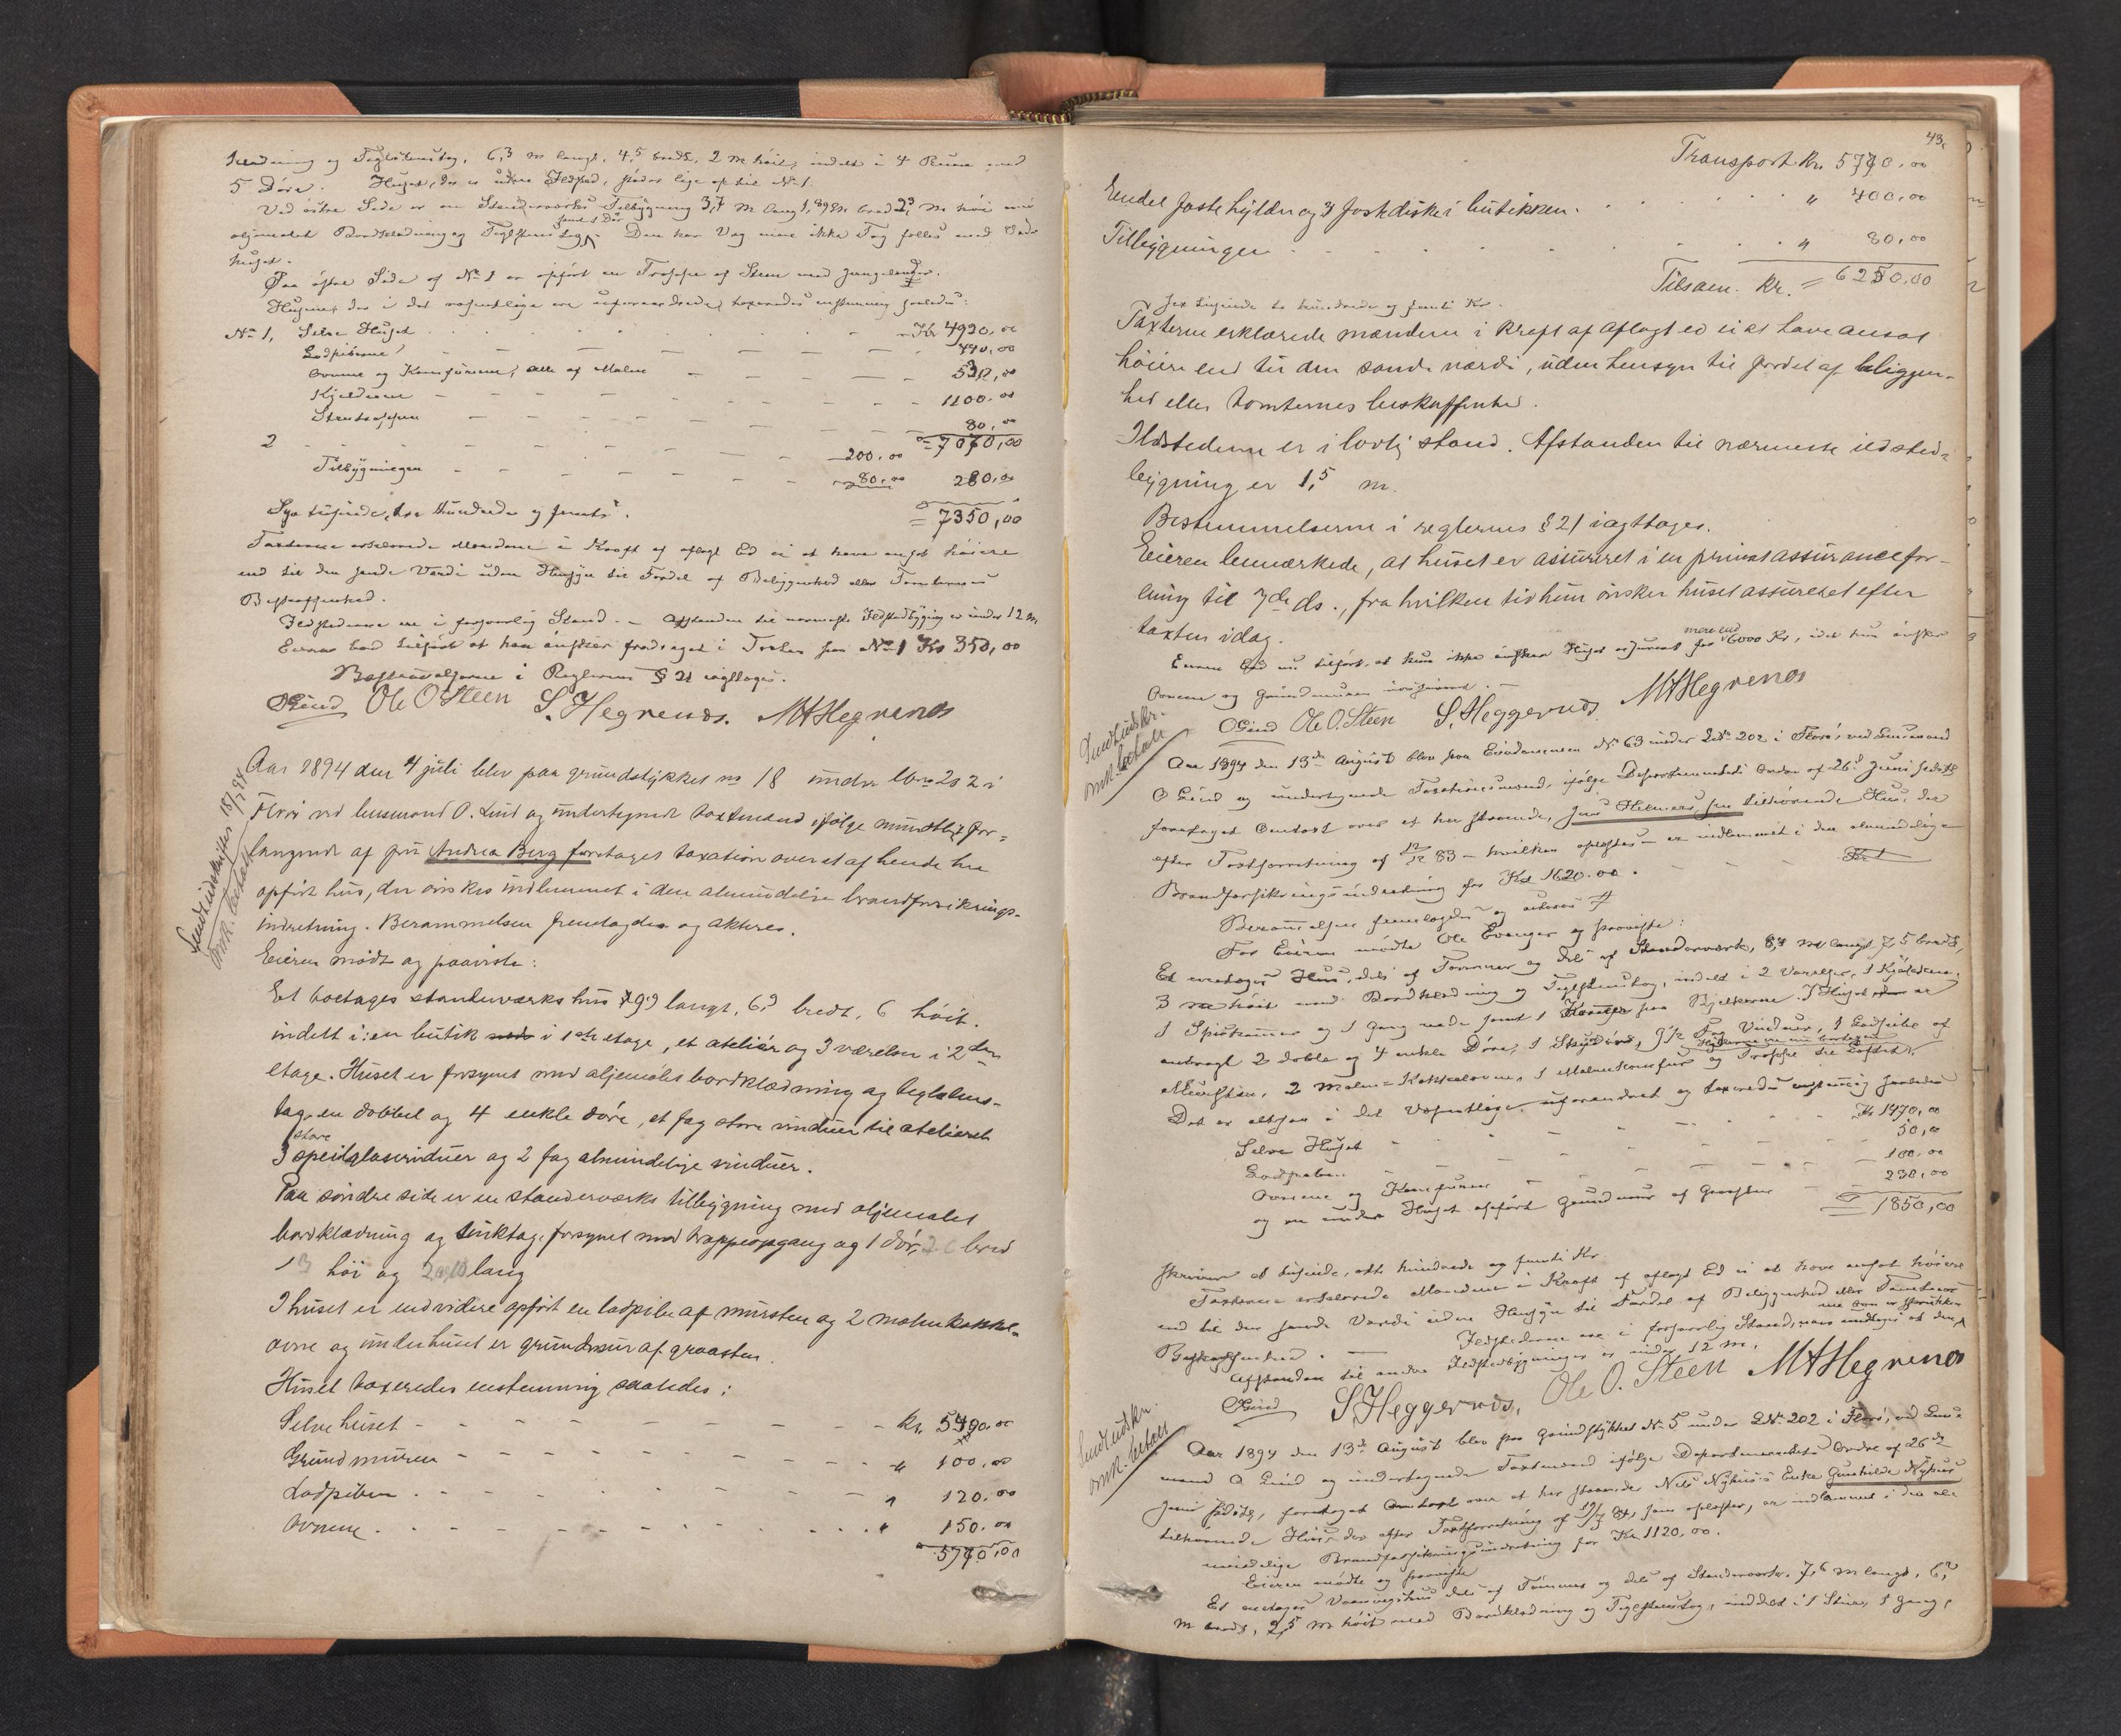 klædning og Teglstenstag, 6,3 m langt, 4,5 bredt, 2 m høit, indelt i 4 Rum med
5 Døre. Huset, der er uden Ildsted, støder lige op til No 1.
Ved østre Side er en Stenderværks Tilbygning 3,7 m lang 1,89 m bred 2,3 m høi med
samt 1 Dør
oljemalet Bordklædning og Teglstenstag. Den har Væg men ikke Tag fælles med
huset.
Paa østre Side af No 1 er opført en Trappe af Sten med
Husene, der i det væsentlige ere uforandrede, taxeredes enstemmig saaledes:
No 1, Selve Huset Kr 4920.00
Ladpiberne 440,00
Ovnene og Komfurene, alle af Malm 530,00
Kjelderen 1100.00
Stentrappen 80,00
= 7070,00
2 200.00
Tilbygningen 80,00 280,00
Syv tusinde, tre Hundrede og femti. = 7350,00
Taxterne erklærede Mændene i Kraft af aflagt Ed ei at have ansat høiere
end til den sande Værdi uden Hensyn til Fordel af Beliggenhed eller Tomternes
Beskaffenhed.
Ildstederne ere i forsvarlig Stand. – Afstanden til nærmeste Ildstedbygning er under 12 m
Eieren bad tilført at han ønsker fradraget i Taxten for No 1 Kr 350,00
Bestemmelserne i Reglerne § 21 iagttoges.
OLind Ole O Steen S. Hegrenæs. MAHegrenæs
Sendt udskrifter 18/7 94
Omk. betalt
Aar 1894 den 4 juli blev paa grundstykket no 18 under lbno 202 i
Florø ved lensmand O. Lind og undertegnede taxtmænd ifølge mundtligt for-
langende af fru Andrea Berg foretages taxation over et af hende her
opført hus, der ønskes indlemmet i den almindelige brandforsikrings-
indretning. Berammelsen fremlagdes og akteres.
Eieren mødte og paaviste:
Et toetages standerværks hus 9,9 langt, 6,9 bredt, 6 høit.
indelt i: en butik i 1ste etage, et atelier og 3 værelser i 2den
etage. Huset er forsynet med oljemalet bordklædning og teglstens-
tag, en dobbel og 4 enkle døre, et fag store vinduer til atelieret
store
3 speilglasvinduer og 2 fag almindelige vinduer.
Paa søndre side er en standerværks tilbygning med oljemalet
bordklædning og sinktag, forsynet med trappeopgang og 1 dør, bred
høi og lang
I huset er endvidere opført en ladpibe af mursten og 2 malmkakkel-
ovne og under huset er grundmur af graasten.
Huset taxeredes enstemmig saaledes:
Selve huset kr. 5490.00
Grundmuren " 100,00
Ladpiben " 120.00
Ovnene " 150.00
5790,00
43.
Transport Kr. 5790.00
Endel faste hylder og 3 fastediske i butikken. " 400,00
Tilbygningen " 80,00
Tilsam. Kr. = 6250,00
Sex tusinde to hundrede og femti Kr.
Taxterne erklærede mændene i kraft af aflagt ed ei at have ansat
høiere end til den sande værdi, uden hensyn til fordel af beliggen-
hed eller tomternes beskaffenhed.
Ildstederne er i lovlig stand. Afstanden til nærmeste ildsted-
bygning er 1,5 m.
Bestemmelserne i reglernes § 21 iagttages.
Eieren bemærkede, at huset er assureret i en privat assuranceforr-
ening til 7de ds., fra hvilken tid hun ønsker huset assureret efter
taxten idag.
mere end
Eieren bad nu tilført, at hun ikke ønsker Huset assureret for 6000 Kr, idet hun ønsker
Ovnene og Grundmuren
Sendt udskr.
omk. betalt
OLind Ole O. Steen S. Heggernæs MAHegrenæs
Aar 1894 den 13de August blev paa Eiendommen No 63 under LNo 202 i Florø, ved Lensmand
O Lind og undertegnede Taxationsmænd, ifølge Departementets Ordre af 26de Juni sidstl
foretaget Omtaxt over et her staaende, Jens Helmers fru tilhørende Hus, der
efter Taxtforretning af 12/12 83 – hvilken oplæstes – er indlemmet i den almindelige
Brandforsikringsindretning for Kr 1620.00.
Berammelsen fremlagdes og acteres
For Eieren mødte Ole Evenger og paaviste:
Et enetages Hus, dels af Tømmer og dels af Standerværk, 8,4 m langt, 7,5 bredt,
3 m høit med Bordklædning og Teglstenstag, indelt i 2 Værelser, 1 Kjøkken,
1 Spisekammer og 1 Gang nede samt 1 Kammer paa Bjelkerne. I Huset er
anbragt 2 doble og 4 enkle Døre, 1 9 1/2 Fag Vinduer, 1 Ladpibe af
Mursten, 2 Malm-Kakkelovne, 1 Malmkomfur og Trappe til Loftet.
Det er altsaa i det Væsentlige uforandret og taxeredes enstemmig saaledes
Selve Huset Kr 1470,00
Ladpiben 50,00
Ovnene og Komfuren 100.00
og en under Huset opført Grundmur af Graasten 230,00
= 1850,00
skriver et tusinde, otte hundrede og femti Kr.
Taxterne erklærede Mændene i Kraft af aflagt Ed ei at have ansat høiere
end til den sande Værdi uden Hensyn til Fordel af Beliggenhed eller Tomternes
Beskaffenhed. – Ildstederne ere i forsvarlig Stand,
Afstanden til andre Ildstedbygninger er under 12 m.
OLind S. Heggernæs. Ole O. Steen MAHegrenæs
Sendt udskr.
omk. betalt
Aar 1894 den 13de August blev paa Grundstykket No 5 under LNo 202 i Florø, ved Lens-
mand O Lind og undertegnede Taxtmænd ifølge Departementets Ordre af 26de
Juni sidstl, foretaget Omtaxt over et her staaende Nels Nykrus's Enke Gunhilde Nykrus
tilhørende Hus, der efter Taxtforretning af 84, som oplæstes, er indlemmet i den al-
mindelige Brandforsikringsindretning for Kr 1120,00.
Eieren mødte og paaviste
Et enetages Vaaningshus dels af Tømmer og dels af Standerværk, 7,6 m langt, 6,2
m bredt, 2,5 m høit med Bordklædning og Teglstenstag, inddelt i 1 Stue, 1 Gang,